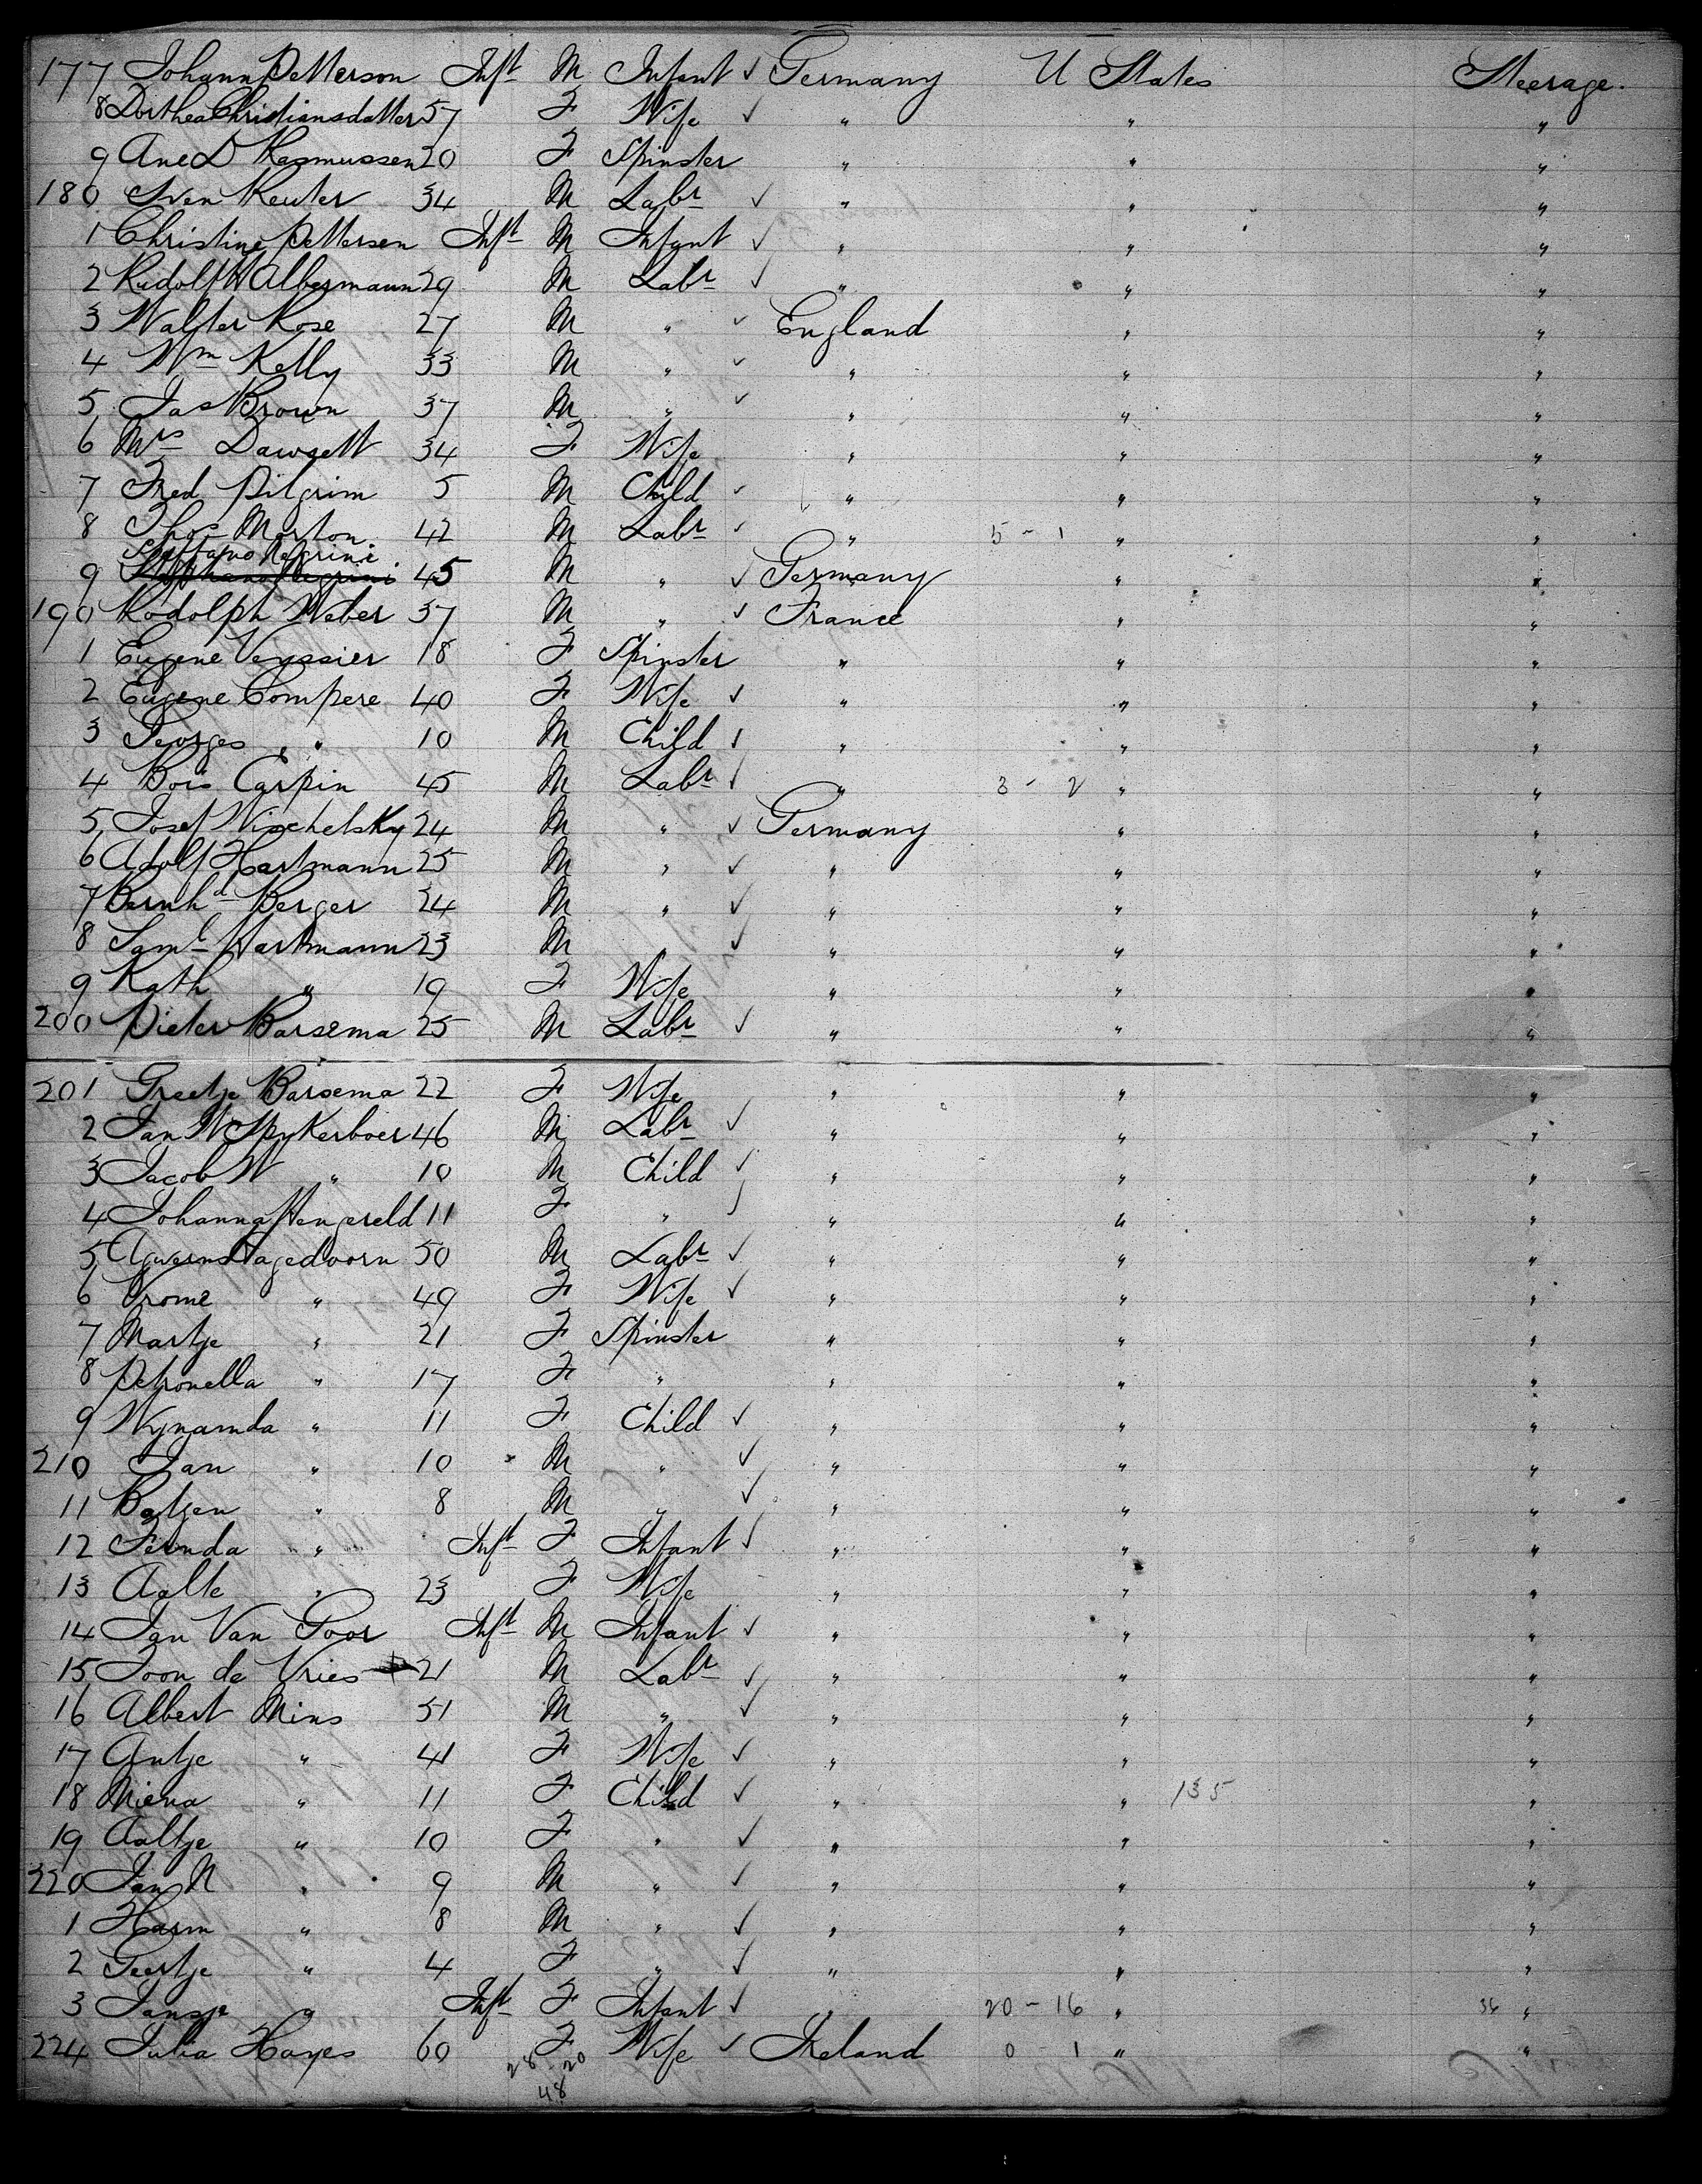 177 Johann Petterson Inft M Infant ✓ Germany U States Steerage.
8 Dorthea Christiansdatter 57 F Wife ✓ " " "
9 Ane D Rasmussen 20 F Spinster " " "
180 Sven Reuter 34 M Labr ✓ " " "
1 Christine Pettersen Inft M Infant ✓ " " "
2 Rudolf H Albermann 29 M Labr ✓ " " "
3 Walter Rose 27 M " ✓ England " "
4 Wm Kelly 33 M " ✓ " " "
5 Jas Brown 37 M " ✓ " " "
6 Mrs Dawsett 34 F Wife " " "
7 Fred Pilgrim 5 M Child ✓ " " "
8 Thos Morton 42 M Labr ✓ " 5 - 1 " "
Negrini
9 45 M " ✓ Germany " "
190 Rodolph Weber 37 M " ✓ France " "
1 Eugene Veyssier 18 F Spinster " " "
2 Eugene Compere 40 F Wife ✓ " " "
3 Georges " 10 M Child ✓ " " "
4 Bois Carpin 45 M Labr ✓ " 3 - 2 " "
5 Josef Wischelsky 24 M " ✓ Germany " "
6 Adolf Hartmann 25 M " ✓ " " "
7 Bernhd Berger 24 M " ✓ " " "
8 Saml Hartmann 23 M " ✓ " " "
9 Kath " 19 F Wife " " "
200 Pieter Barsema 25 M Labr ✓ " " "
201 Greetje Barsema 22 F Wife " " "
2 Jan W Spykerboer 46 M Labr ✓ " " "
3 Jacob W " 10 M Child ✓ " " "
4 Johanna Hengereld 11 F " ✓ " " "
5 Hagedoorn 50 M Labr ✓ " " "
6 Vrome " 49 F Wife ✓ " " "
7 Martje " 21 F Spinster " " "
8 Petronella " 17 F " " " "
9 Wynamda " 11 F Child ✓ " " "
210 Jan " 10 M " ✓ " " "
11 Batjen " 8 M " ✓ " " "
12 Feenda " Inft F Infant ✓ " " "
13 Aalte " 23 F Wife " " "
14 Jan Van Goor Inft M Infant ✓ " " "
15 Toon de Vries 21 M Labr ✓ " " "
16 Albert Mins 51 M " ✓ " " "
17 Antje " 41 F Wife ✓ " " "
18 Miena " 11 F Child ✓ " " 135 "
19 Aaltje " 10 F " ✓ " " "
220 Jan N " 9 M " ✓ " " "
1 Harm " 8 M " ✓ " " "
2 Geertje " 4 F " ✓ " " "
3 Jansje " Inft F Infant ✓ " 20 - 16 " 36 "
224 Julia Hayes 60 F Wife ✓ Ireland 0 - 1 " "
28 - 20
48